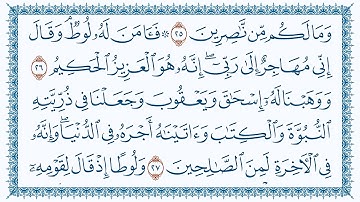 وَمَا لَكُم مِّن نَّٰصِرِينَ ٢٥ ۞ فَـَٔامَنَ لَهُۥ لُوطٌۘ وَقَالَ
إِنِّي مُهَاجِرٌ إِلَىٰ رَبِّيٓۖ إِنَّهُۥ هُوَ ٱلْعَزِيزُ ٱلْحَكِيمُ ٢٦
وَوَهَبْنَا لَهُۥٓ إِسْحَٰقَ وَيَعْقُوبَ وَجَعَلْنَا فِي ذُرِّيَّتِهِ
ٱلنُّبُوَّةَ وَٱلْكِتَٰبَ وَءَاتَيْنَٰهُ أَجْرَهُۥ فِي ٱلدُّنْيَاۖ وَإِنَّهُۥ
فِي ٱلْـَٔاخِرَةِ لَمِنَ ٱلصَّٰلِحِينَ ٢٧ وَلُوطًا إِذْ قَالَ لِقَوْمِهِۦٓ